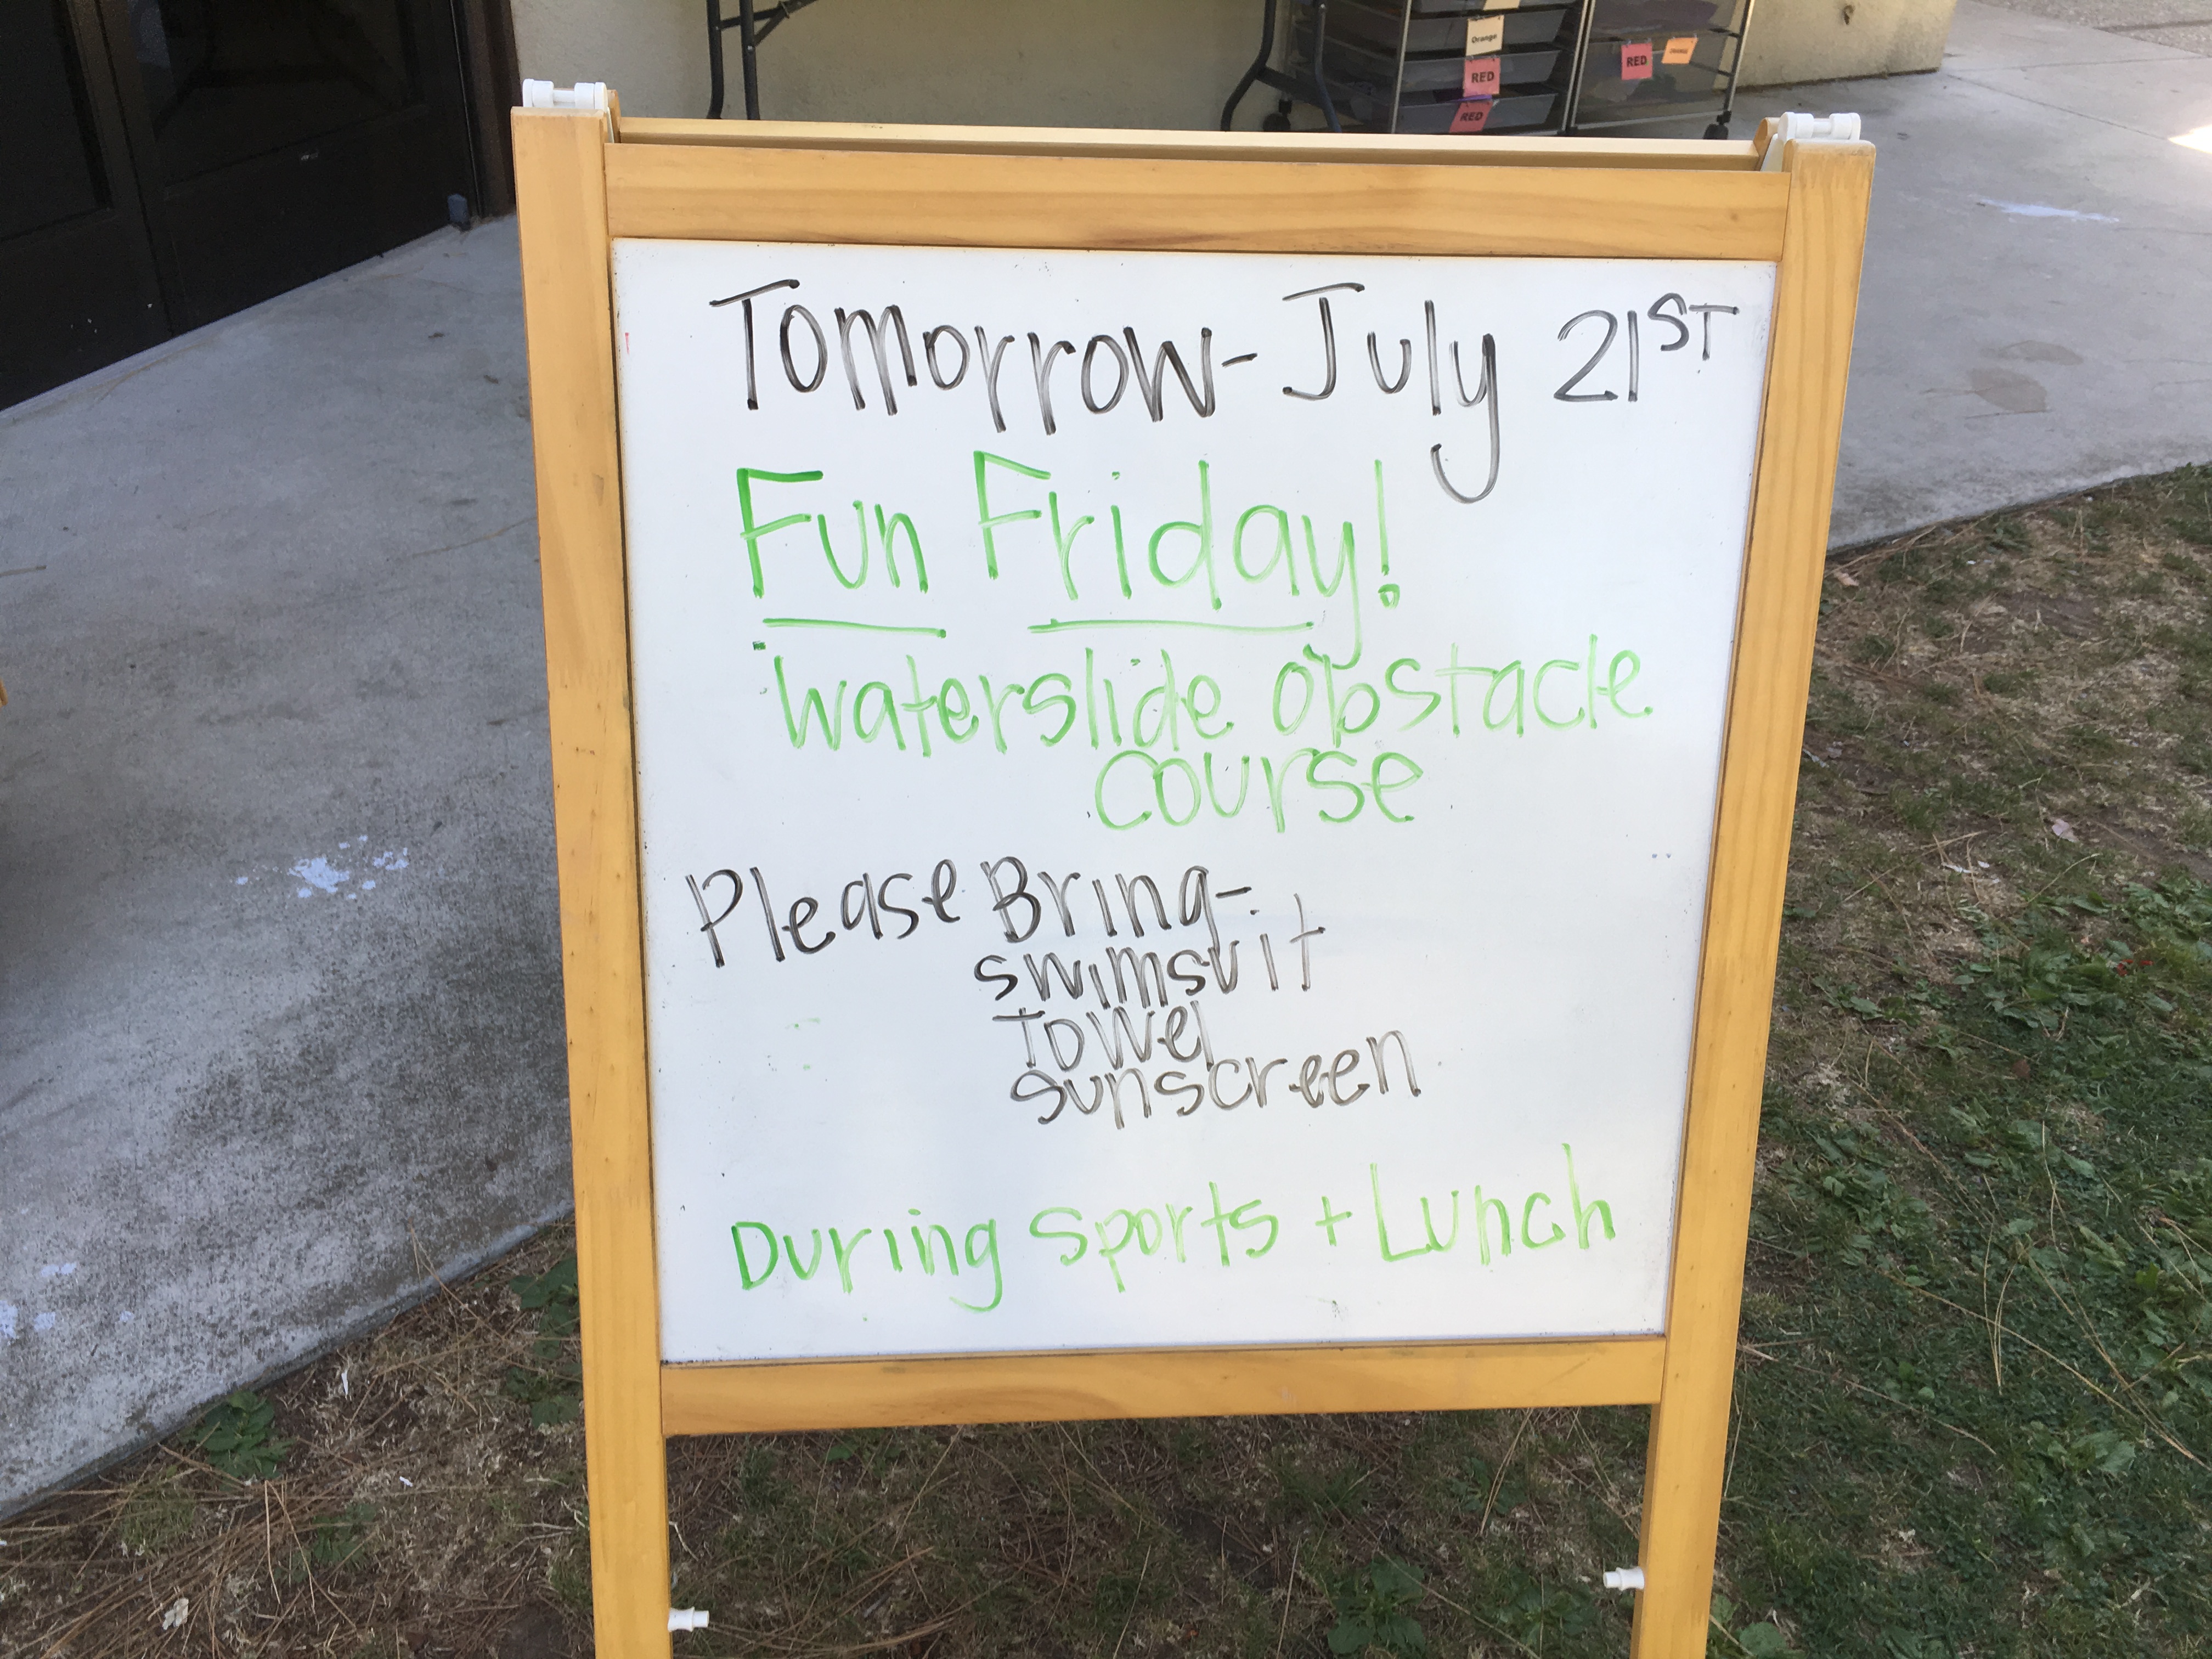 Orange
RED
RED
RED
ORANGE
Tomorrow- July 21ST
Fun Friday!
waterslide obstacle
course
Please Bring-
swimsuit
Towel
sunscreen
During Sports + Lunch